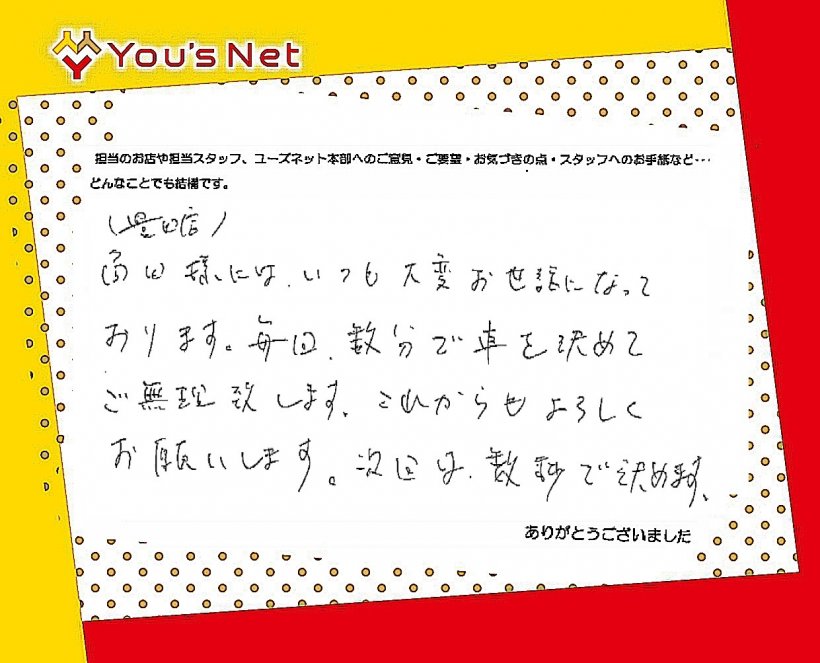 You's Net
担当のお店や担当スタッフ、ユーズネット本部へのご意見・ご要望・お気づきの点・スタッフへのお手話など…
どんなことでも結構です。
(豊田店)
様には、いつも大変お世話になって
おります。毎回、数分で車を決めて
ご無理致します、これからもよろしく
お願いします。次回は、数秒で決めます、
ありがとうございました